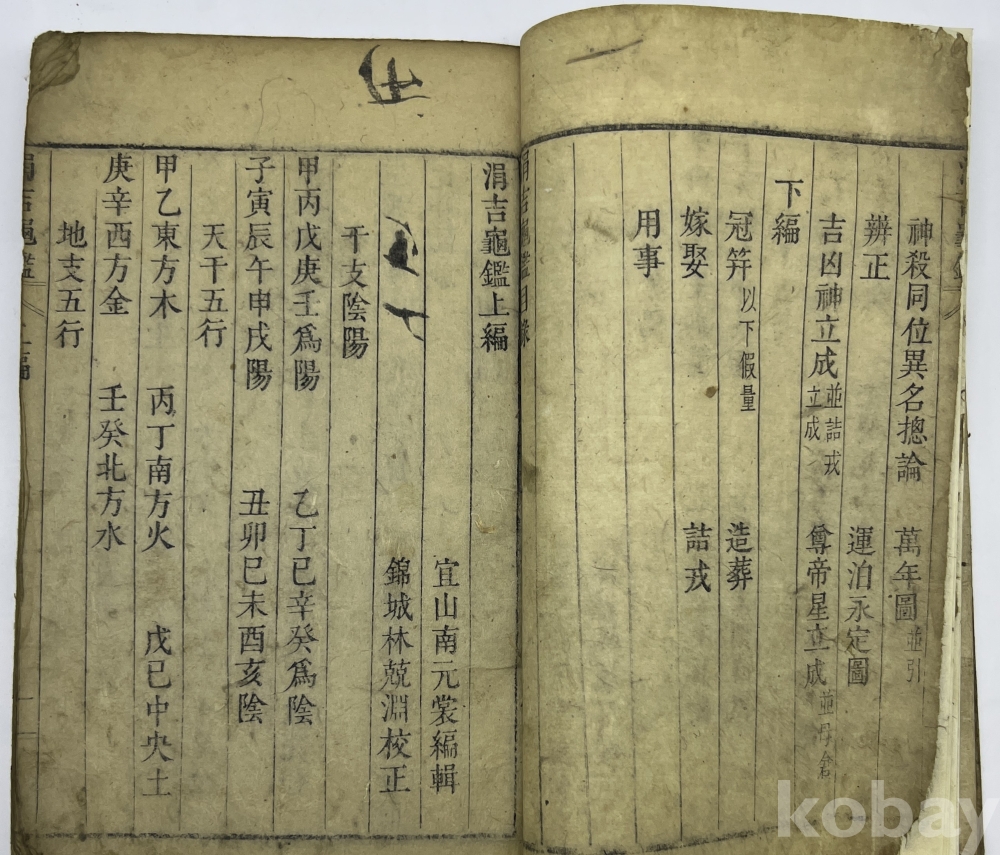 神殺同位異名摠論 萬年圖並引
辨正 運泊永定圖
吉凶神立成並詰戎立成 尊帝星立成並
下編
冠笄以下假量 造葬
嫁娶 詰戎
用事
涓吉龜鑑目錄
涓吉龜鑑上編
宜山南元裳編輯
錦城林兢淵校正
干支陰陽
甲丙戊庚壬爲陽 乙丁己辛癸爲陰
子寅辰午申戌陽 丑卯巳未酉亥陰
天干五行
甲乙東方木 丙丁南方火 戊己中央土
庚辛西方金 壬癸北方水
地支五行
涓吉龜鑑 上編
kobay